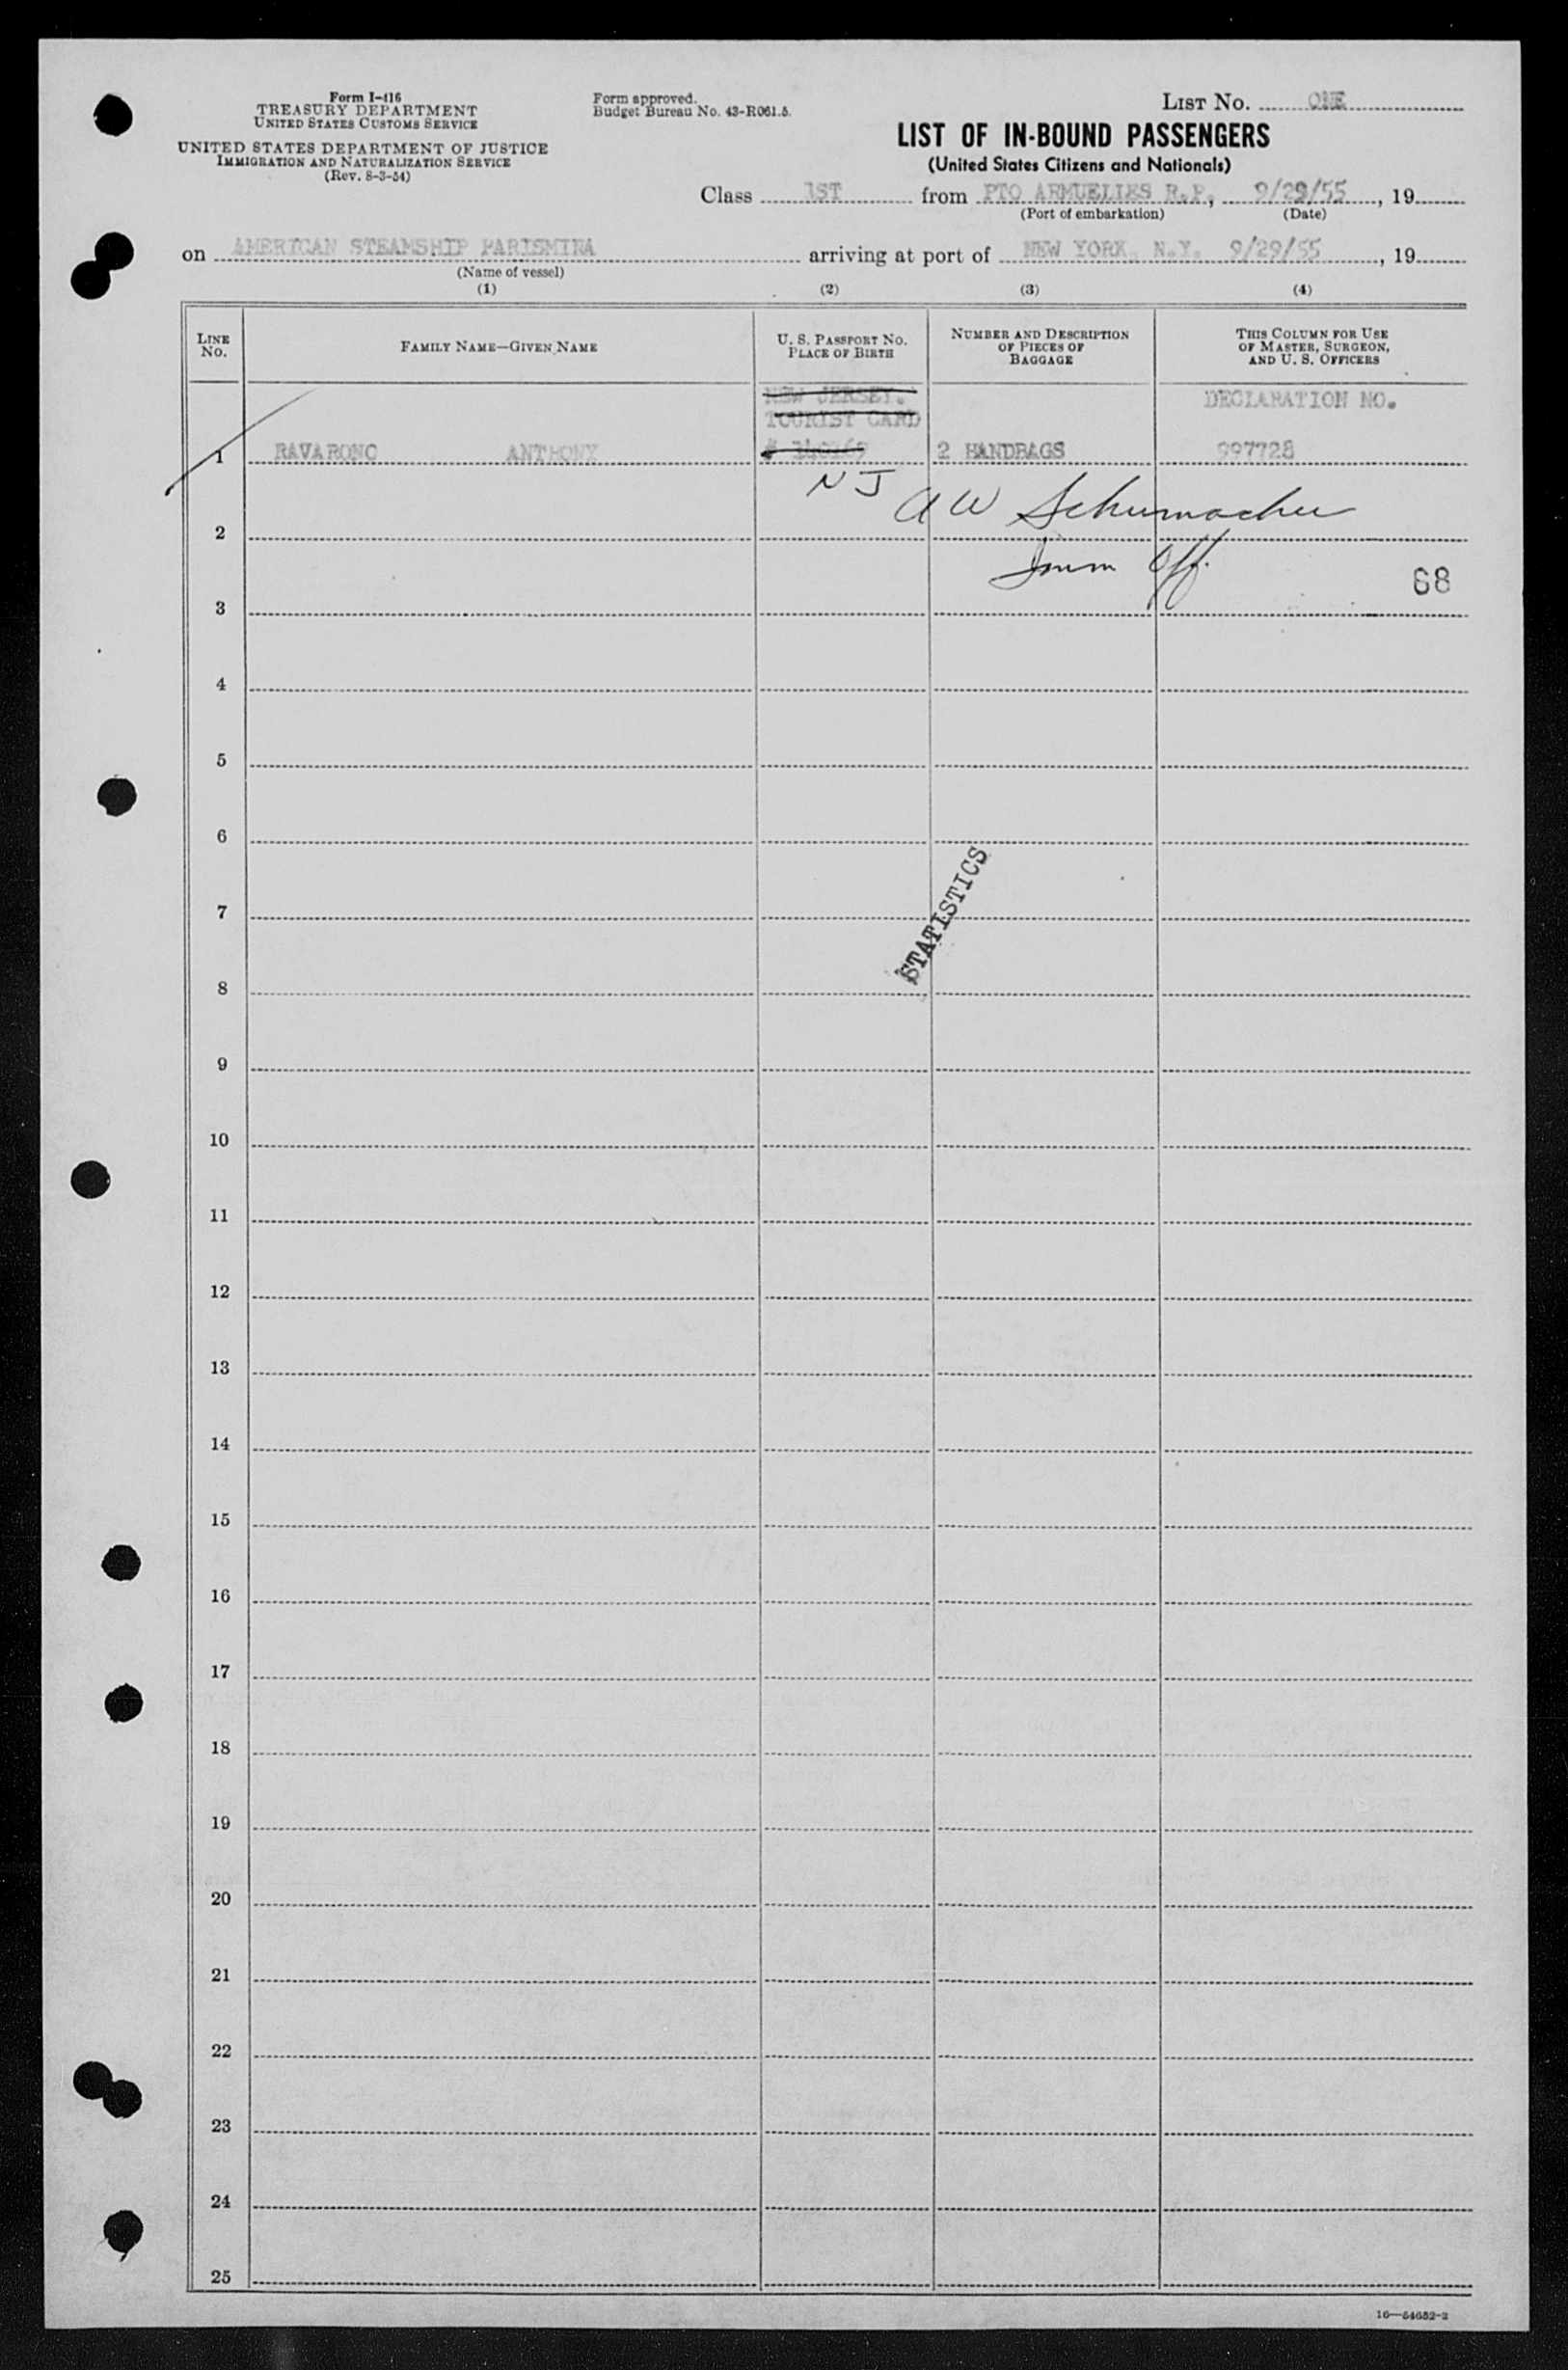 Form I-416
TREASURY DEPARTMENT
UNITED STATES CUSTOMS SERVICE
UNITED STATES DEPARTMENT OF JUSTICE
IMMIGRATION AND NATURALIZATION SERVICE
(Rev. 8-3-54)
Form approved.
Budget Bureau No. 43-R061.5.
LIST NO. ONE
LIST OF IN-BOUND PASSENGERS
(United States Citizens and Nationals)
Class 1ST from PTO ARMUELLES R.P., 9/29/55, 19
(Port of embarkation) (Date)
on AMERICAN STEAMSHIP PARISMINA arriving at port of NEW YORK, N.Y. 9/29/55, 19
(Name of vessel)
(1) (2) (3) (4)
LINE NO. FAMILY NAME—GIVEN NAME U. S. PASSPORT NO. PLACE OF BIRTH NUMBER AND DESCRIPTION OF PIECES OF BAGGAGE THIS COLUMN FOR USE OF MASTER, SURGEON, AND U. S. OFFICERS
NEW JERSEY. DECLARATION NO.
TOURIST CARD
1 RAVARONO ANTHONY # 2 HANDBAGS 997728
NJ
AW Schumacher
2
Imm Off.
68
3
4
5
6
STATISTICS
7
8
9
10
11
12
13
14
15
16
17
18
19
20
21
22
23
24
25
16—54652-2